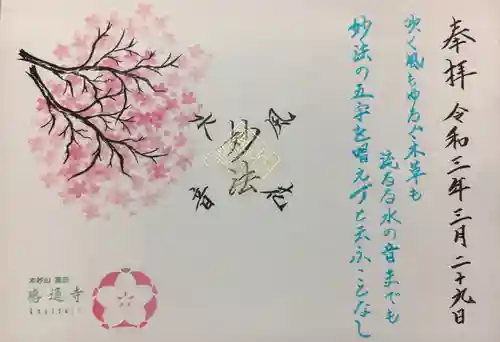 奉拝 令和三年三月二十九日
吹く風もゆるぐ木草も
流るる水の音までも
妙法の五字を唱えずと云ふことなし
風
妙法
水音
感通寺